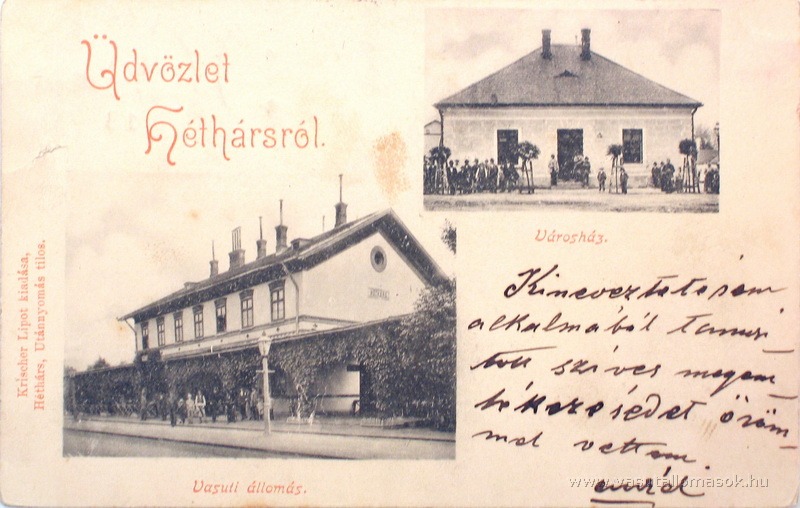 Üdvözlet
Héthársról.
Városház.
Krischer Lipót kiadása,
Héthárs, Utánnyomás tilos.
HÉTHÁRS
Vasuti állomás.
Kineveztetésem
alkalmából tanusi-
tott szíves megem-
lékezésedet öröm-
mel vettem
www.vasutallomasok.hu